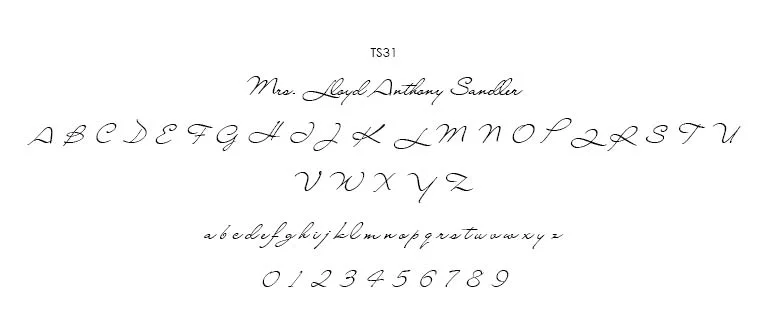 TS31
Mrs. Lloyd Anthony Sandler
A B C D E F G H I J K L M N O P Q R S T U
V W X Y Z
a b c d e f g h i j k l m n o p q r s t u v w x y z
0 1 2 3 4 5 6 7 8 9